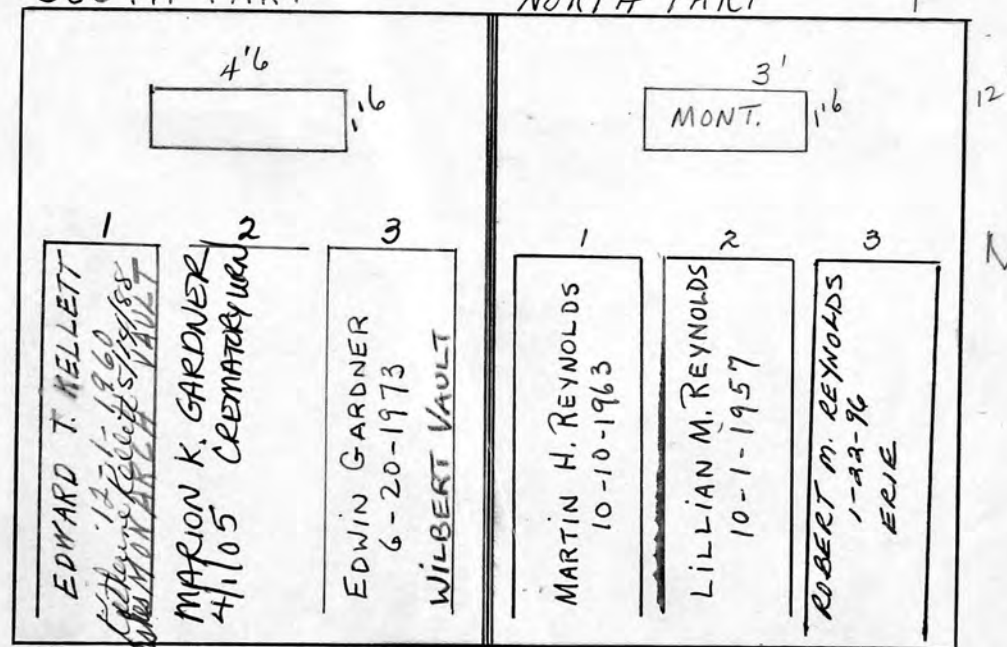 SOUTH PART
NORTH PART
4'6
1'6
3'
MONT.
1'6
12
1
EDWARD T. KELLETT
12-1-1960
Katherine Kellett 5/14/88
MONARCH VAULT
2
MARION K. GARDNER
4/1/05 CREMATORY URN
3
EDWIN GARDNER
6-20-1973
WILBERT VAULT
1
MARTIN H. REYNOLDS
10-10-1963
2
LILLIAN M. REYNOLDS
10-1-1957
3
ROBERT M. REYNOLDS
1-22-96
ERIE